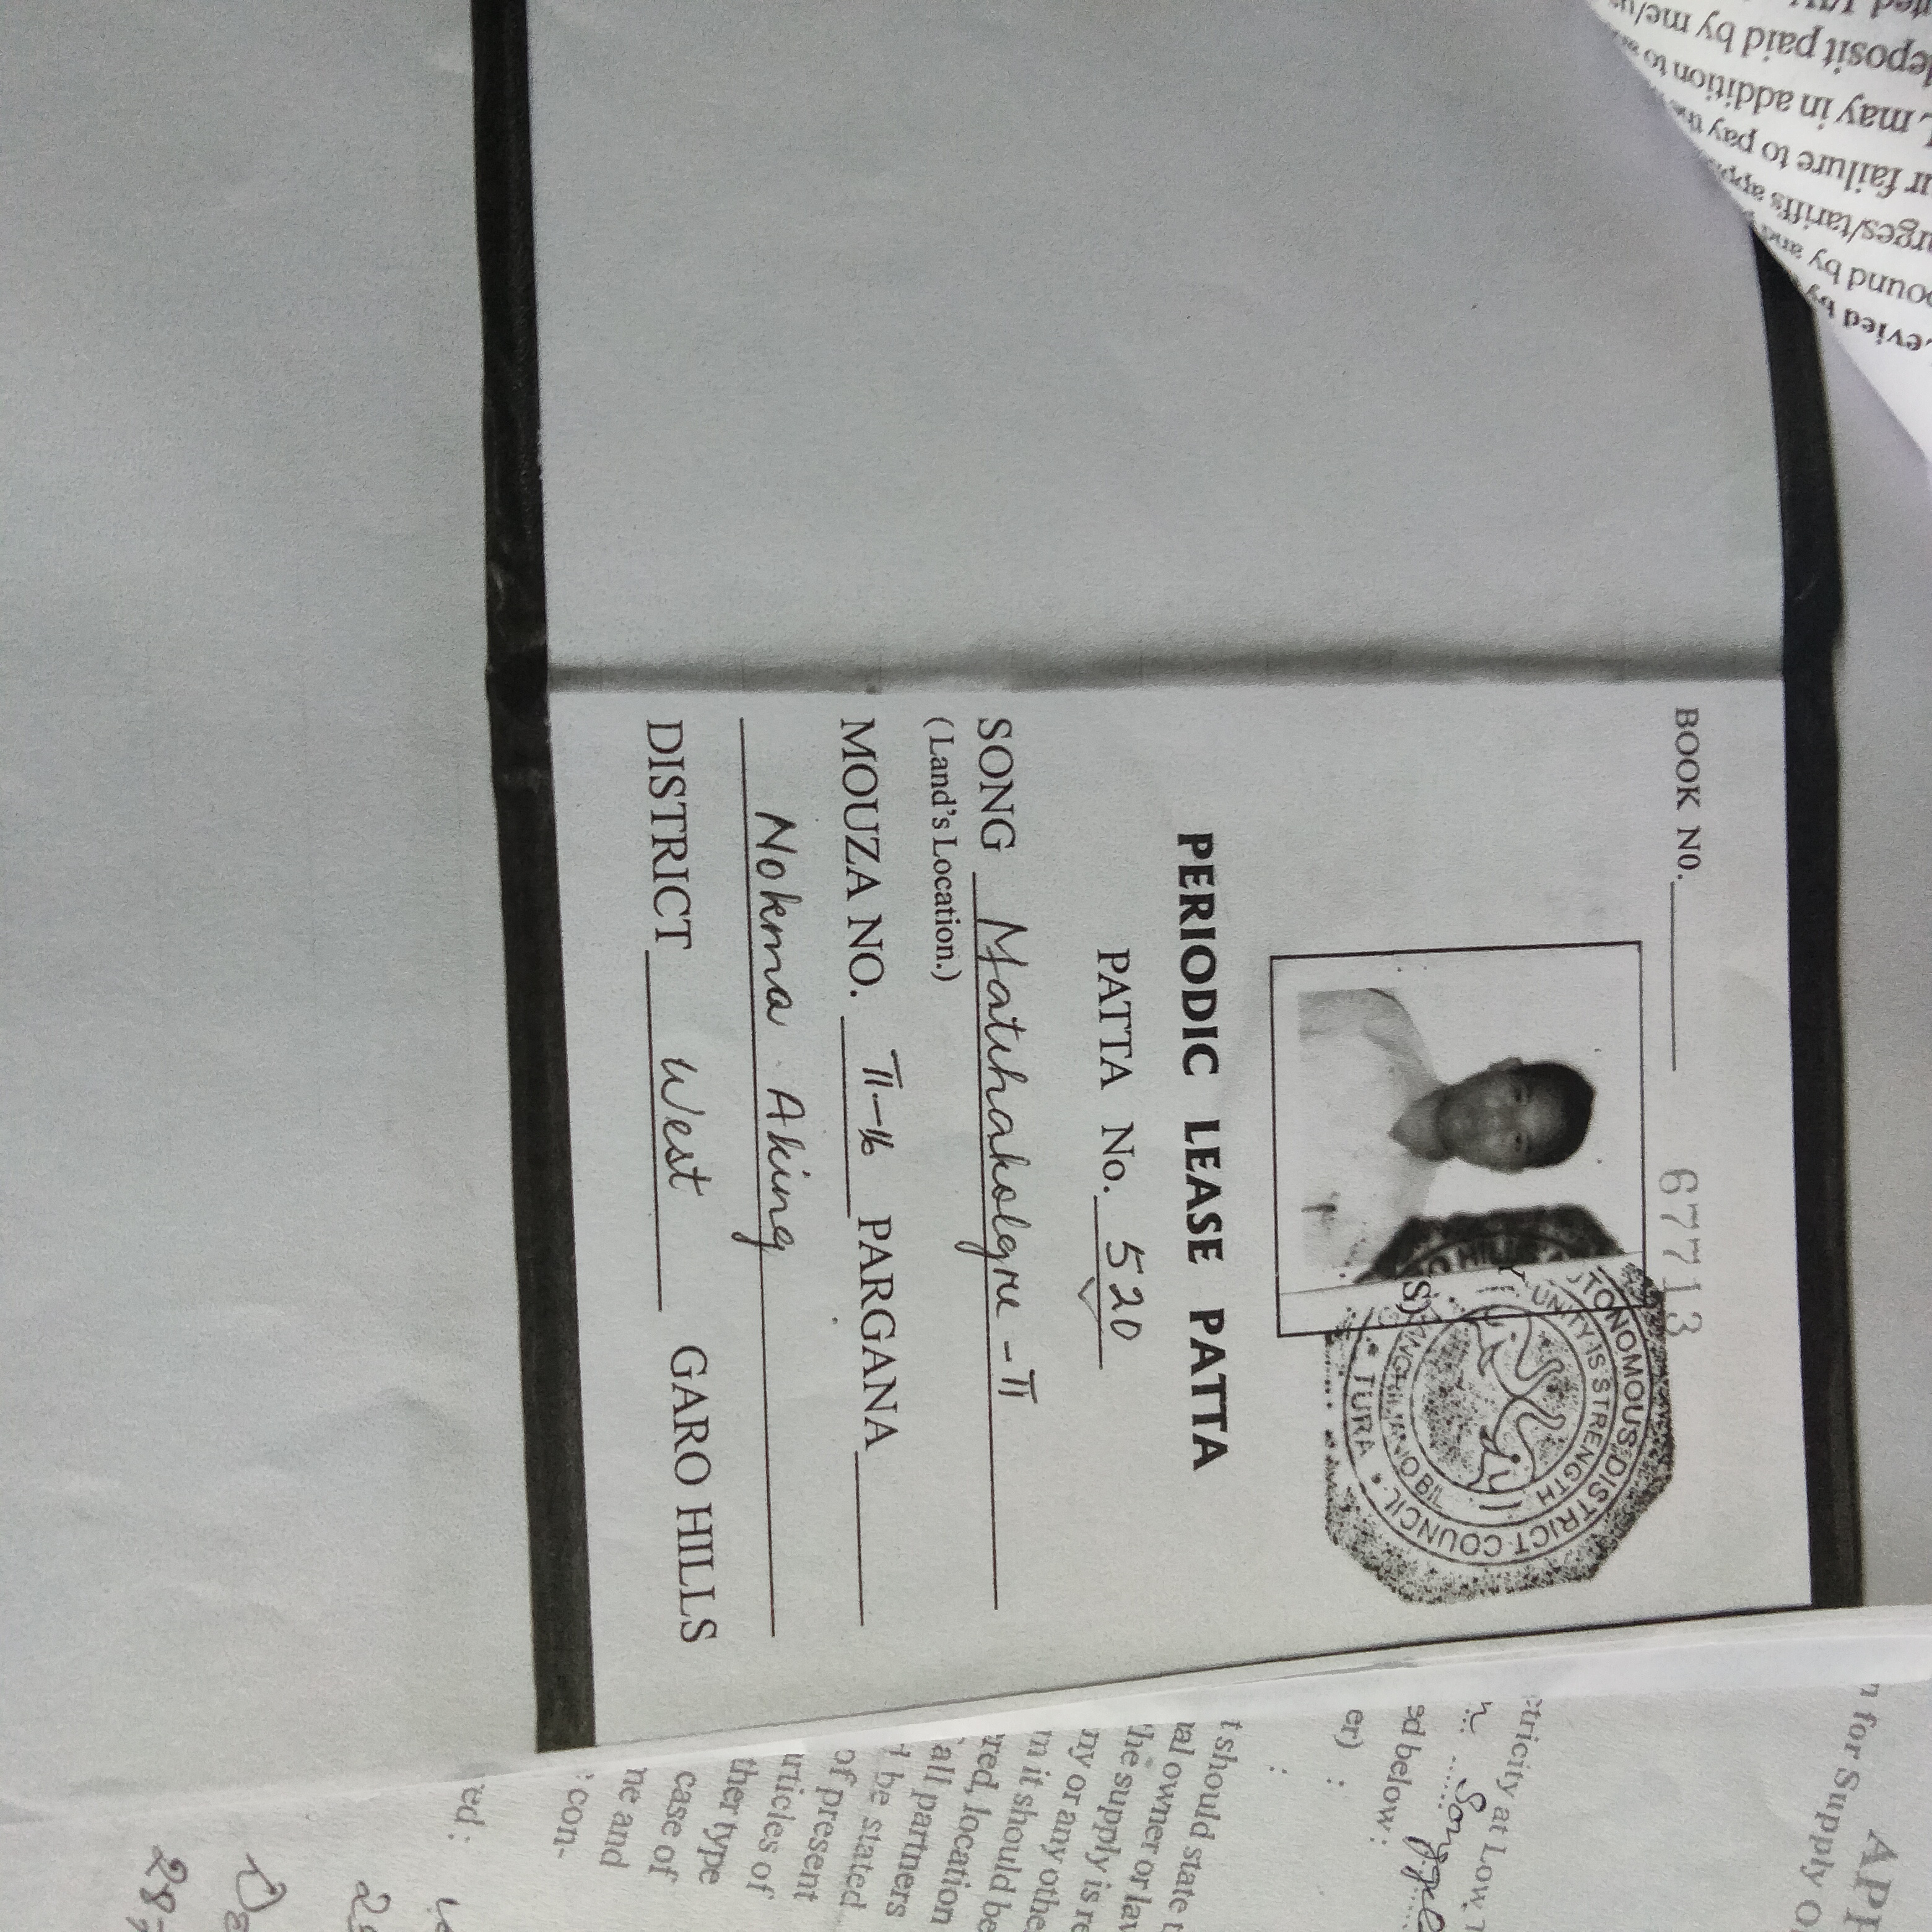 BOOK NO.
67713
GARO HILLS AUTONOMOUS DISTRICT COUNCIL
UNITY IS STRENGTH
TURA
PERIODIC LEASE PATTA
PATTA No. 520
SONG Matchakolgre - II
(Land's Location.)
MOUZA NO. II-16 PARGANA
Nokma Aking
DISTRICT West GARO HILLS
deposit paid by me/
, may in addition to
failure to pay the
tariffs
ound by and
evied by
for Supply
tricity at Low
ed below:
er) :
:
t should state
al owner or
the supply is
ny or any othe
m it should be
red, location
all partners
t be stated
of present
rticles of
ther type
case of
ne and
con-
red :